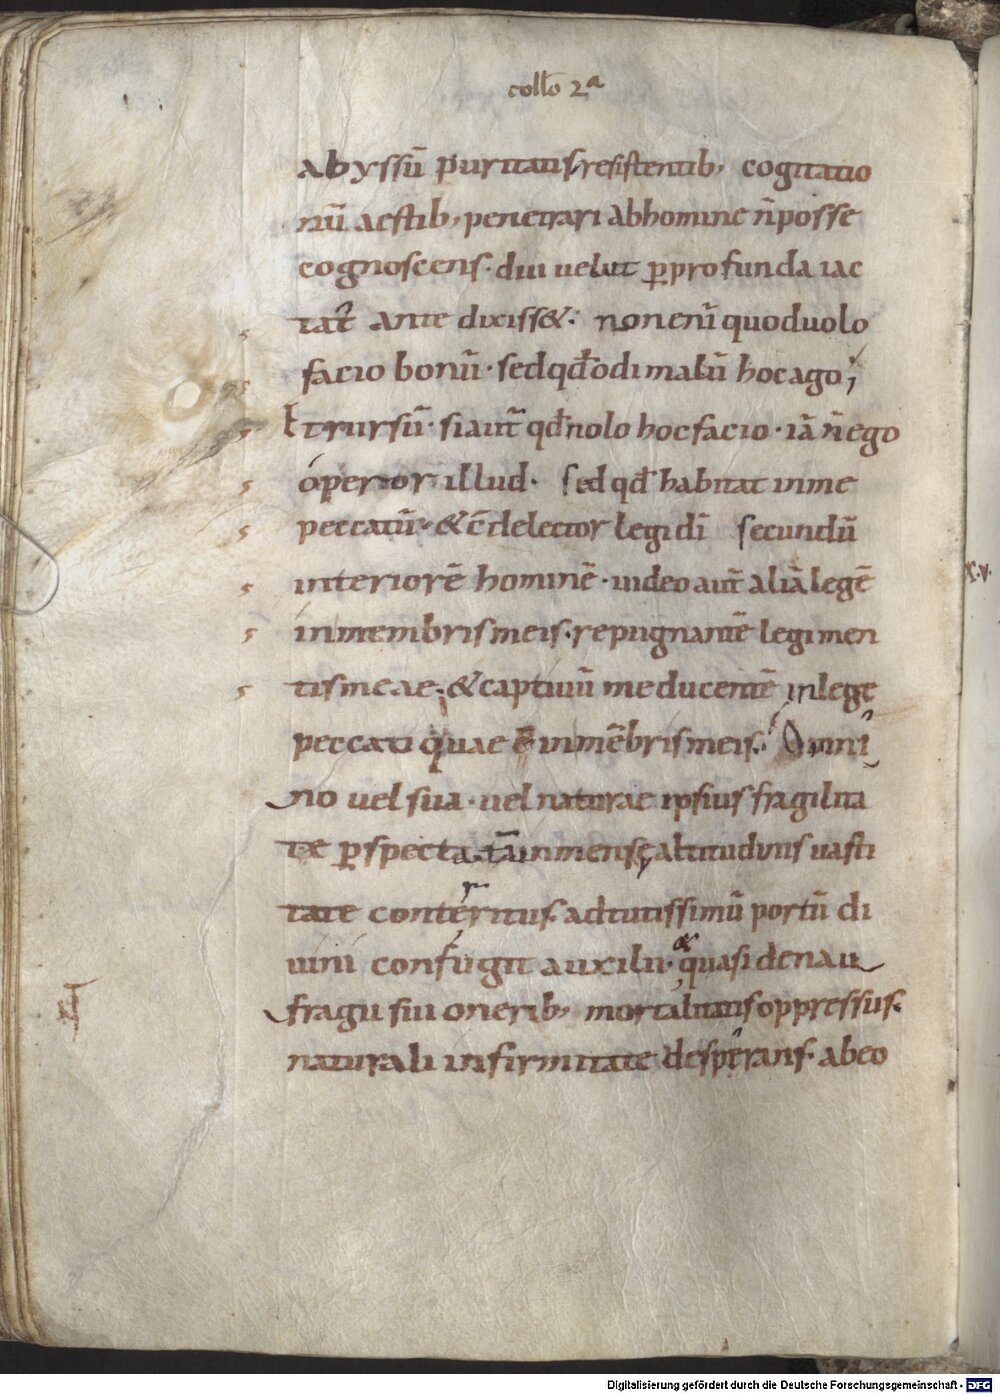 collo 2ª
abyssū puritatis resistentib; cogitatio
nū aestib; penetrari abhomine n̄posse
cognoscens· diu uelut ꝑprofunda iac
tat̄ ante dixiss&: nonenī quoduolo
facio bonū· sedqđodi malū hocago;
Etrursū· siaut̄ qđnolo hocfacio· iā n̄ego
operior illud· sed qđ habitat inme
peccatū· &c̄delector legi dī secundū
interiorē hominē· uideo aut̄ aliā legē
inmembrismeis· repugnantē legi men
tismeae· &captiuū meducentē inlege
peccati quae ē inmēbrismeis· Omni
no uel sua· uel naturae ipsius fragilita
te ꝑspecta· tāinmensę altitudinis uasti
tate conterritus· adtutissimū portū di
uini confugit auxilii· & quasi denau
fragii sui onerib; mortalitatis oppressus·
naturali infirmitate desperans· abeo
x.v.
Digitalisierung gefördert durch die Deutsche Forschungsgemeinschaft - DFG